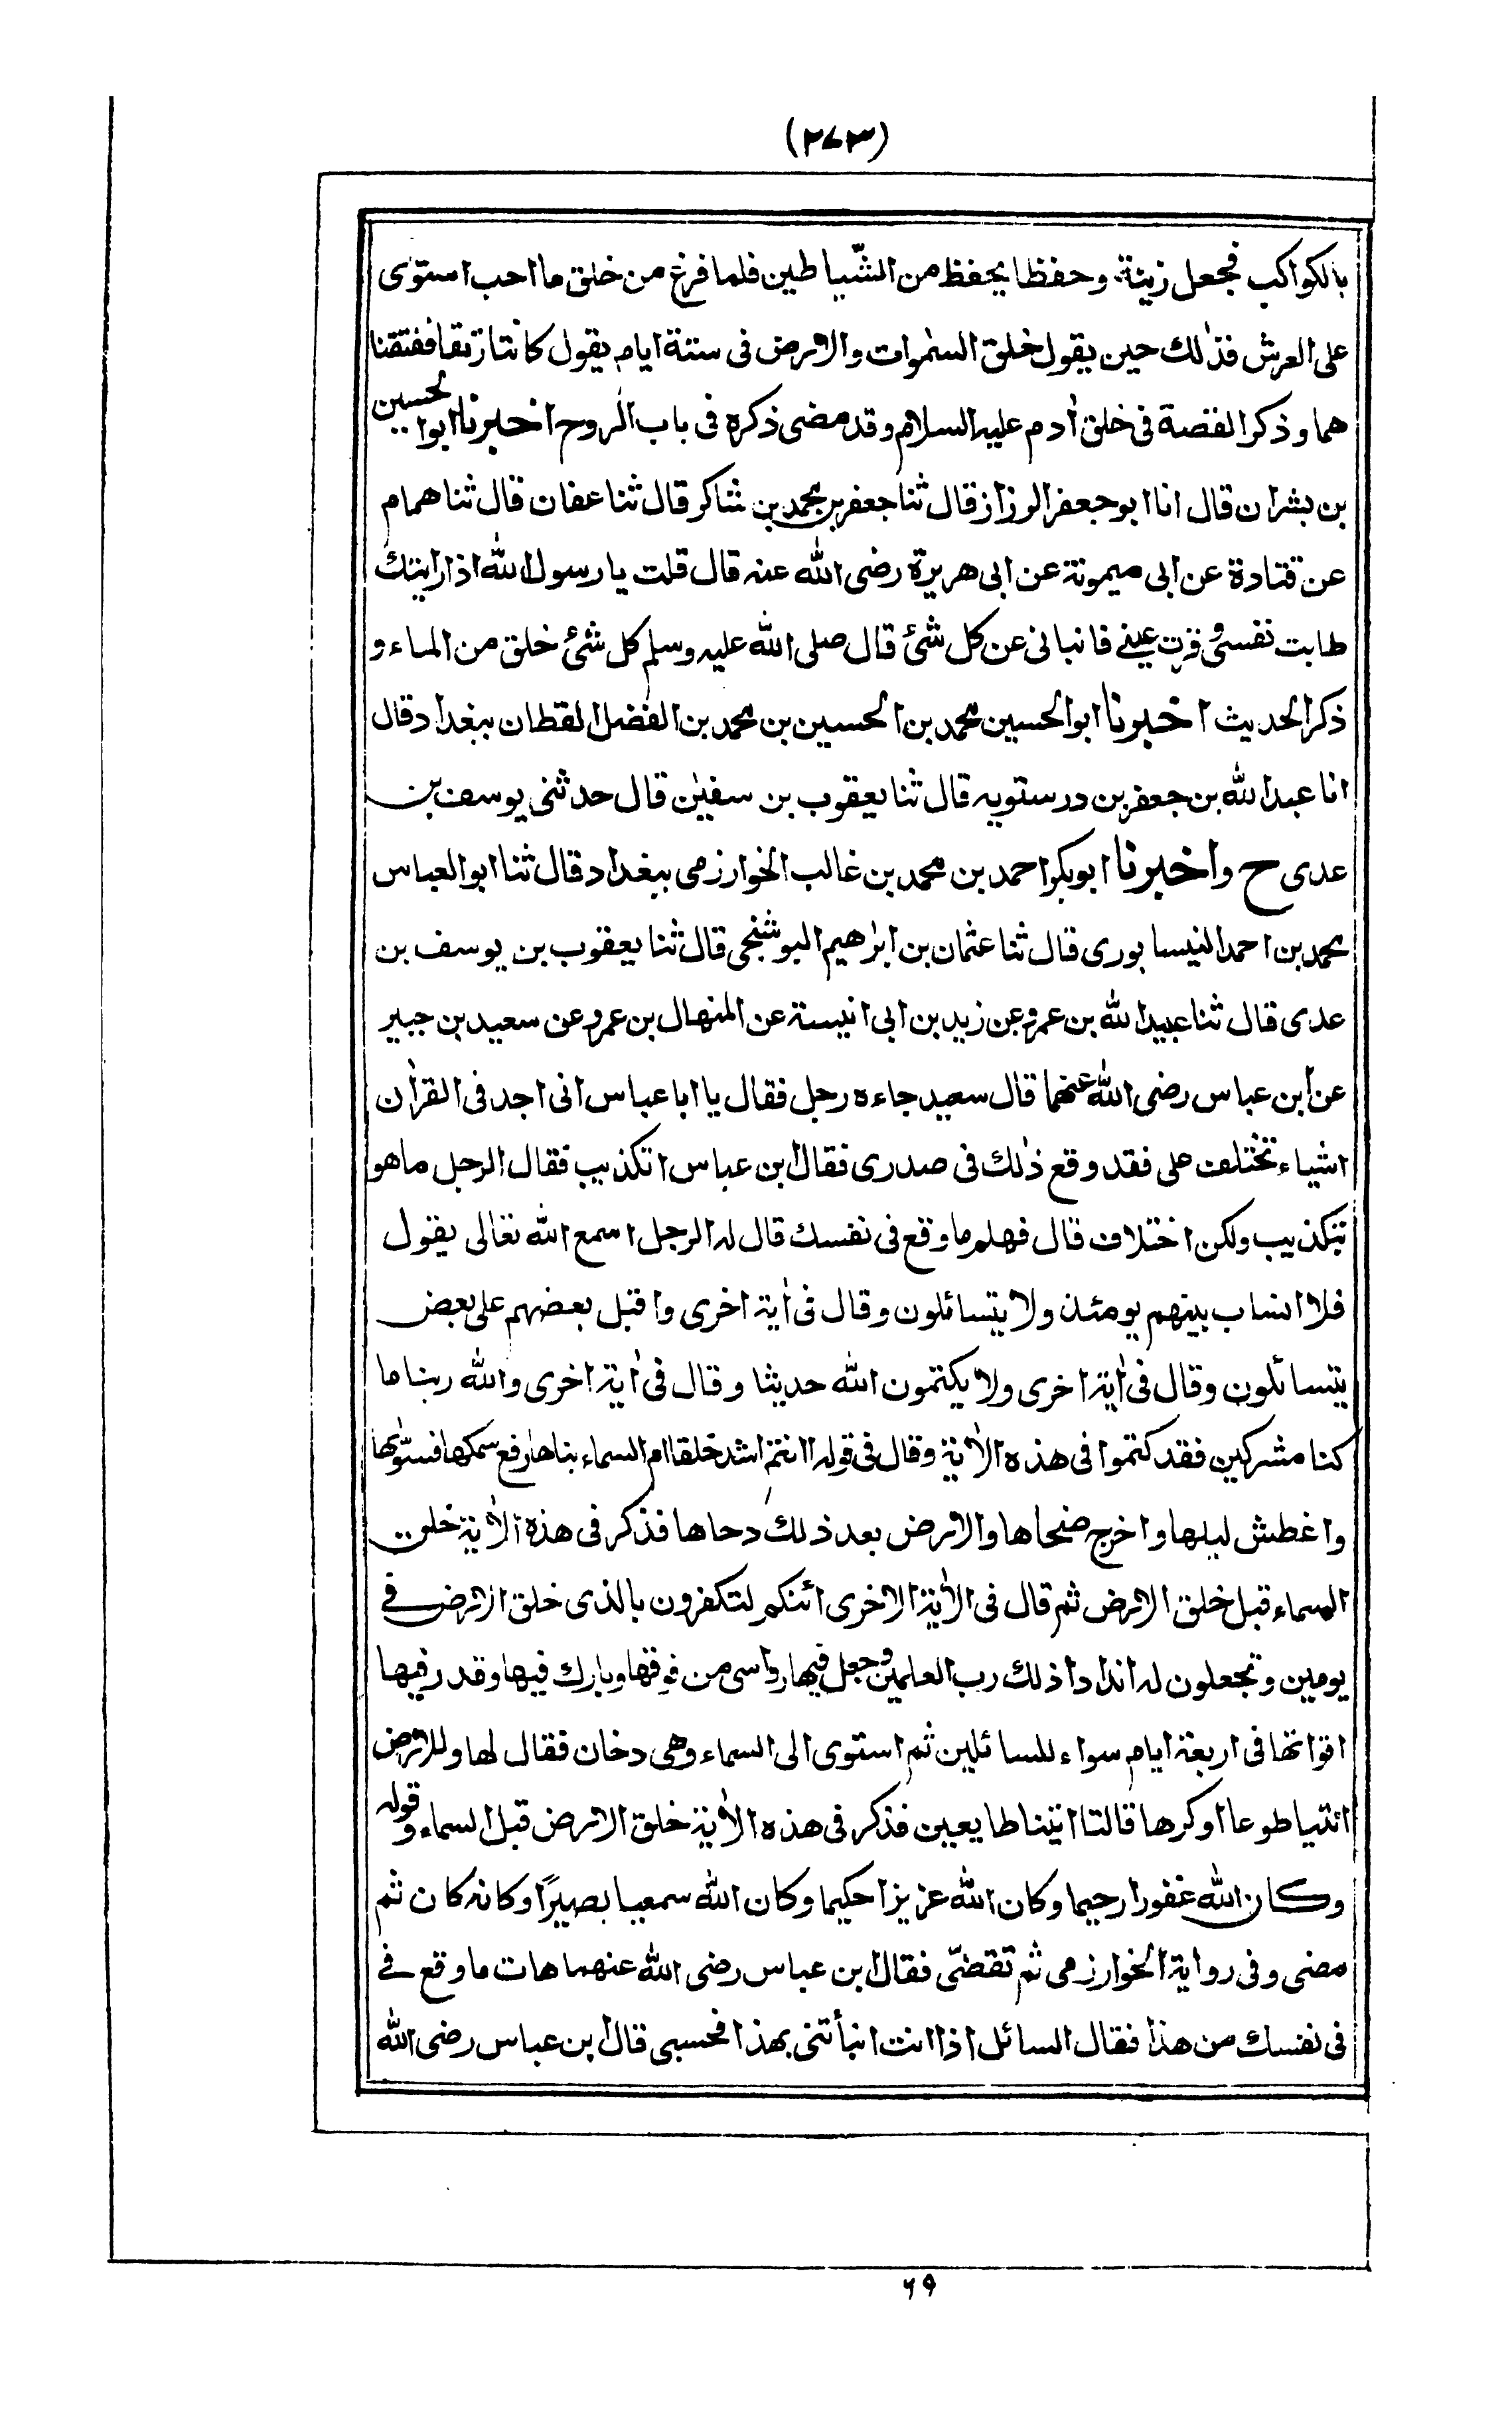 (٢٧٣)
بالكواكب فجعل زينة وحفظا يحفظ من الشّياطين فلما فرغ من خلق ما احب استوى
على العرش فذلك حين يقول خلق السمٰوات والارض فى ستة ايام يقول كانتا رتقا ففتقنا
هما وذكر القصة فى خلق اٰدم عليه السلام وقد مضى ذكره فى باب الروح اخبرنا ابوالحسين
بن بشران قال انا ابو جعفر الرزاز قال ثنا جعفر بن محمد بن شاكر قال ثنا عفان قال ثنا همام
عن قتادة عن ابى ميمونة عن ابى هريرة رضى الله عنه قال قلت يا رسول الله اذا رايتك
طابت نفسى وقرت عينے فانبانى عن كل شئ قال صلى الله عليه وسلم كل شئ خلق من الماء و
ذكر الحديث اخبرنا ابوالحسين محمد بن الحسين بن محمد بن الفضل القطان ببغداد قال
انا عبد الله بن جعفر بن درستويه قال ثنا يعقوب بن سفيٰن قال حدثنى يوسف بن
عدى ح واخبرنا ابوبكر احمد بن محمد بن غالب الخوارزمى ببغداد قال ثنا ابوالعباس
محمد بن احمد النيسابورى قال ثنا عثمان بن ابرٰهيم البوشنجى قال ثنا يعقوب بن يوسف بن
عدى قال ثنا عبيد الله بن عمرو عن زيد بن ابى انيسة عن المنهال بن عمرو عن سعيد بن جبير
عن ابن عباس رضى الله عنهما قال سعيد جاءه رجل فقال يا ابا عباس انى اجد فى القراٰن
اشياء تختلف على فقد وقع ذٰلك فى صدرى فقال ابن عباس اتكذيب فقال الرجل ما هو
بتكذيب ولكن اختلاف قال فهلم ما وقع فى نفسك قال له الرجل اسمع الله تعالى يقول
فلا انساب بينهم يومئذ ولا يتسائلون وقال فى اٰية اخرى واقبل بعضهم على بعض
يتسائلون وقال فى اٰية اخرى ولا يكتمون الله حديثا وقال فى اٰية اخرى والله ربنا ما
كنا مشركين فقد كتموا فى هذه الاٰية وقال فى قوله اانتم اشد خلقا ام السماء بناها رفع سمكها فسوّٰيها
واغطش ليلها واخرج ضحاها والارض بعد ذلك دحاها فذكر فى هذه الاٰية خلق
السماء قبل خلق الارض ثم قال فى الاٰية الاخرى ائنكم لتكفرون بالذى خلق الارض فے
يومين وتجعلون له اندادا ذلك رب العلمين وجعل فيها رواسى من فوقها وبارك فيها وقدر فيها
اقواتها فى اربعة ايام سواء للسائلين ثم استوى الى السماء وهى دخان فقال لها وللارض
ائتيا طوعا او كرها قالتا اتينا طايعين فذكر فى هذه الاٰية خلق الارض قبل السماء وقوله
وكان الله غفورا رحيما وكان الله عزيزا حكيما وكان الله سمعيا بصيرًا وكانه كان ثم
مضى وفى رواية الخوارزمى ثم تقضّى فقال ابن عباس رضى الله عنهما هات ما وقع فے
فى نفسك من هذا فقال السائل اذا انت انبأتنى بهذا فحسبى قال ابن عباس رضى الله
٦٩